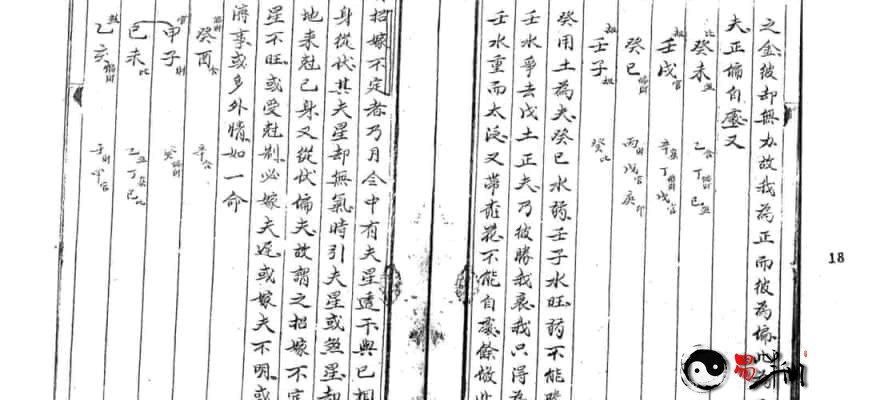 之金彼却無力故我為正而彼為偏此
夫正偏自處又
比癸未煞 乙食丁己煞
劫壬戌官 辛梟丁戊官
癸巳 丙財戊官庚印
劫壬子劫 癸比
癸用土為夫癸巳水弱壬子水旺弱不能勝
壬水爭去戊土正夫乃彼勝我衰我只得為
壬水重而太泛又帶桃花不能自處餘倣此
招嫁不定者乃月令中有夫星透干與已相
身從伏其夫星却無氣時引夫星或煞星却
地来尅己身又從伏偏夫故謂之招嫁不定
星不旺或受尅制必嫁夫遲或嫁夫不明或
濟事或多外情如一命
偏財癸酉食 辛食
官甲子財 癸偏財
己未比 乙煞丁梟己比
煞乙亥 壬財甲官
18